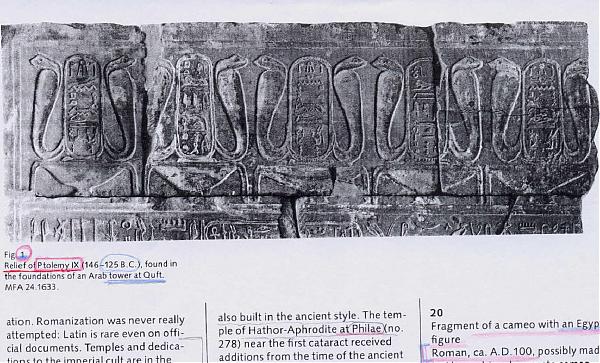 Fig. 1.
Relief of Ptolemy IX (146–125 B.C.), found in
the foundations of an Arab tower at Quft.
MFA 24.1633.
ation. Romanization was never really
attempted: Latin is rare even on offi-
cial documents. Temples and dedica-
tions to the imperial cult are in the
also built in the ancient style. The tem-
ple of Hathor-Aphrodite at Philae (no.
278) near the first cataract received
additions from the time of the ancient
20
Fragment of a cameo with an Egyp
figure
Roman, ca. A.D. 100, possibly mad